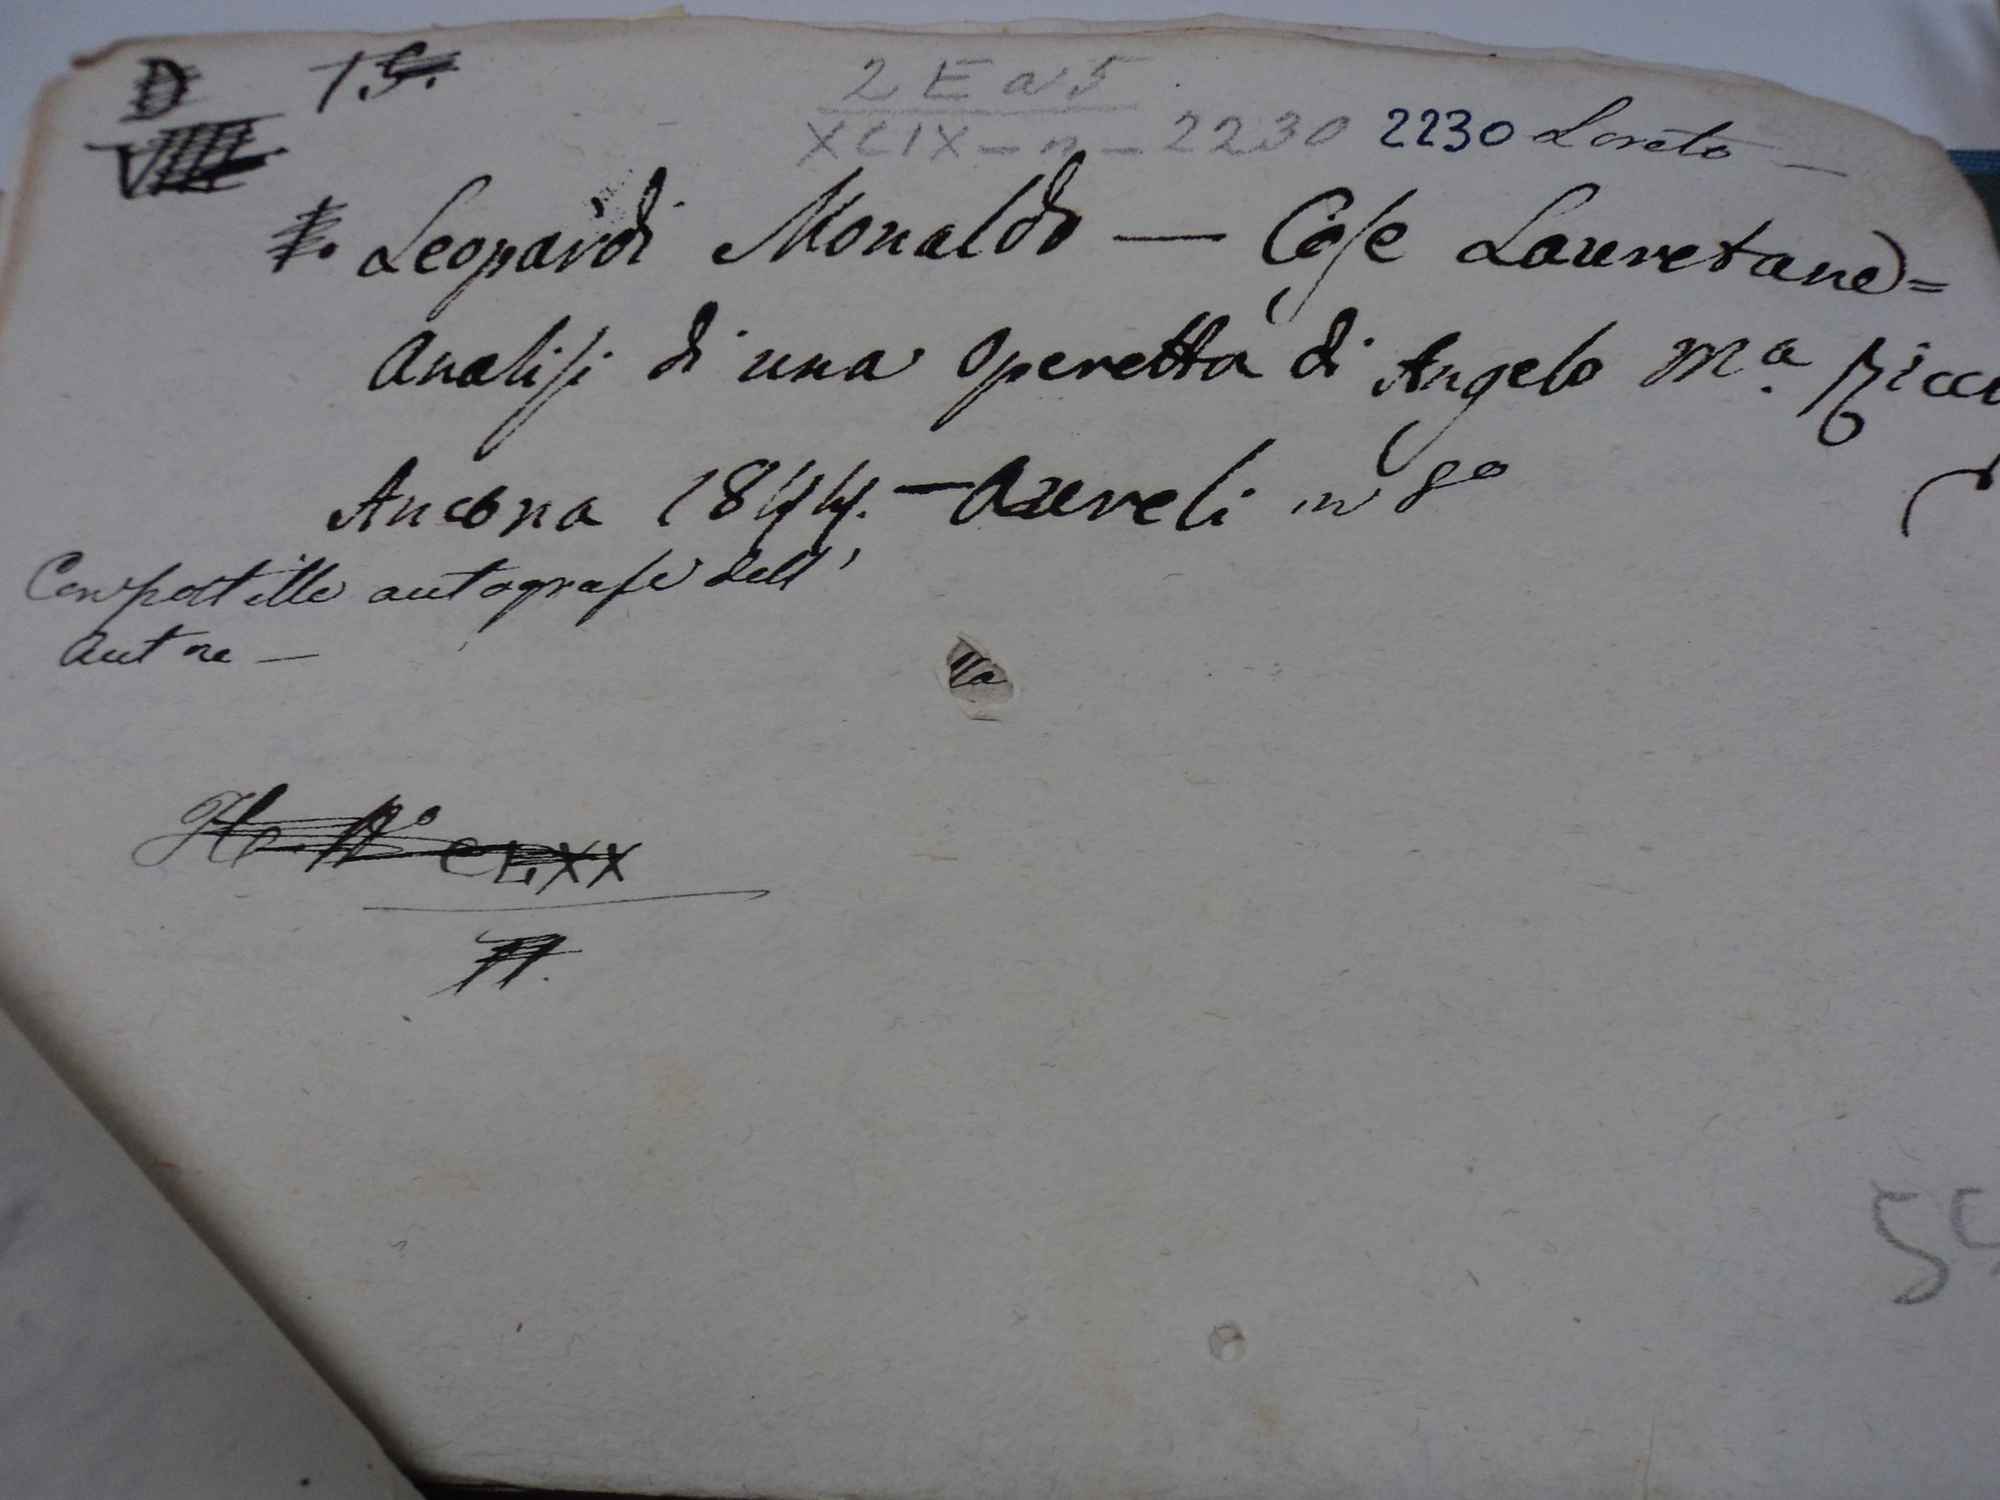 D 15.
VIIII.
2 E a 5
XCIX - n - 2230 2230 Loreto —
Leopardi Monaldo — Cose Lauretane =
Analisi di una operetta di Angelo Mª. Ricci
Ancona 1844. — Aureli in 8º
Con postille autografe dell'
autore —
CLXX